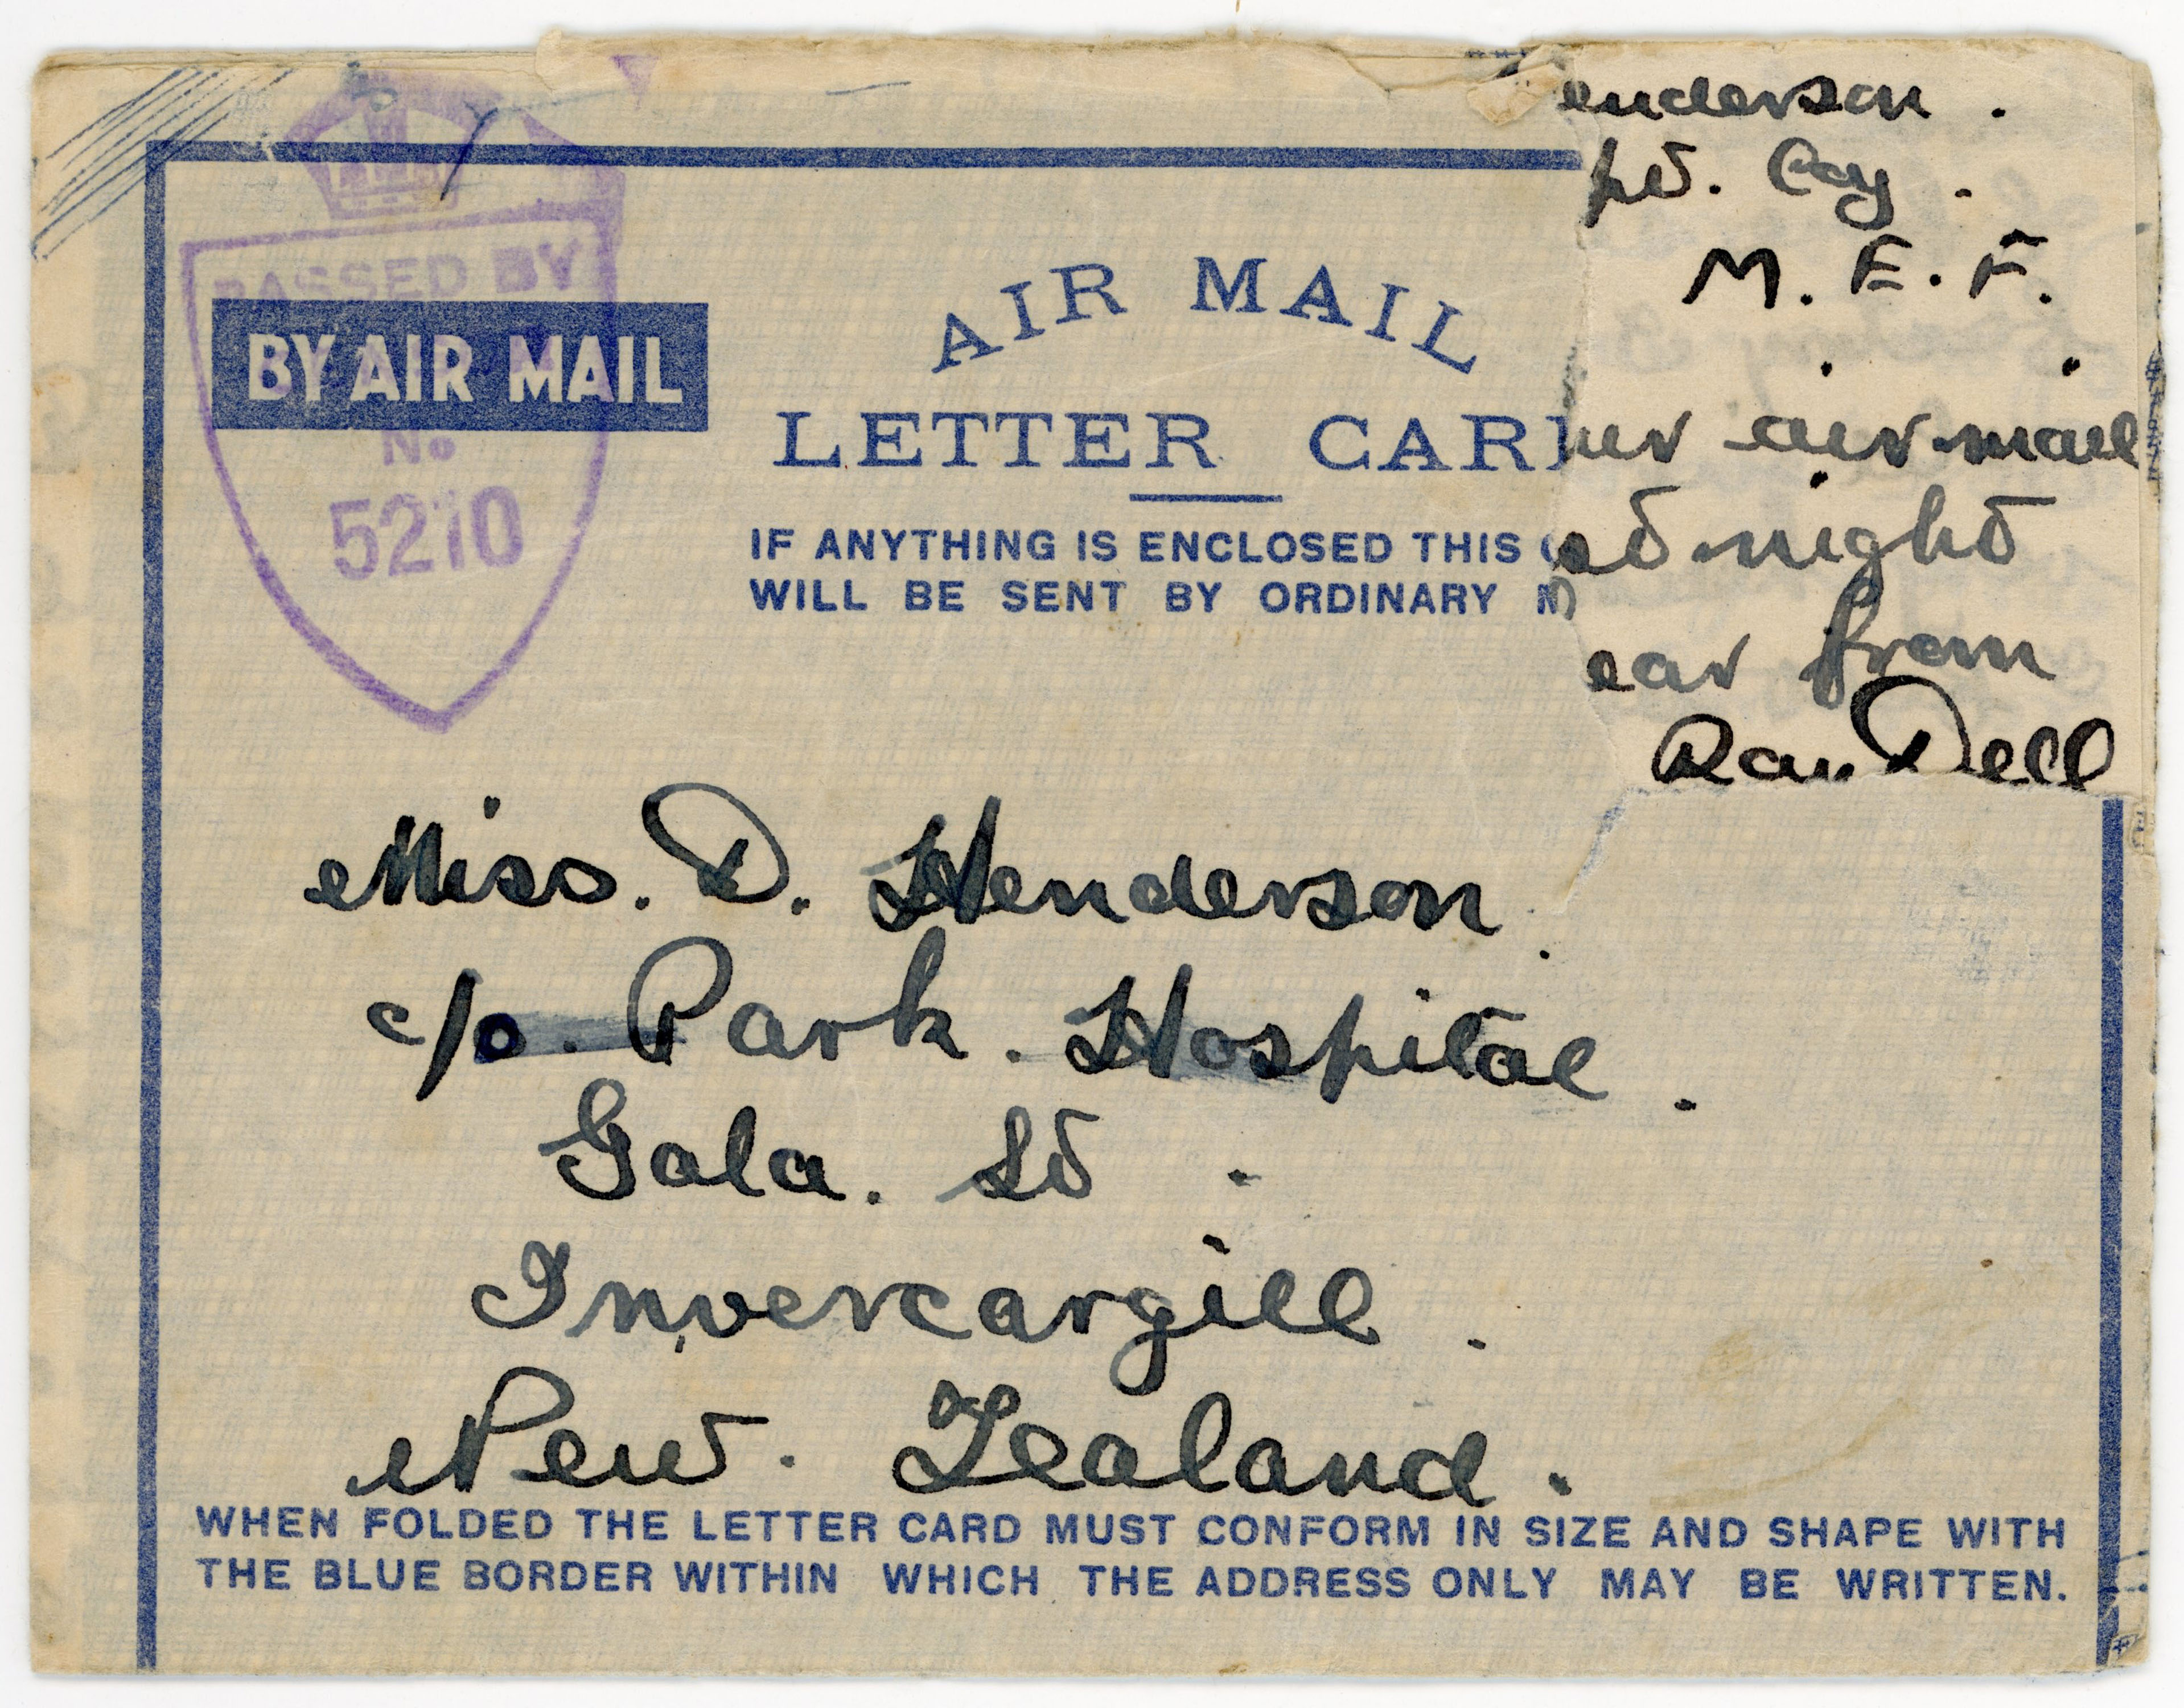 PASSED BY
No
5210
BY AIR MAIL
AIR MAIL
LETTER CAR
IF ANYTHING IS ENCLOSED THIS
WILL BE SENT BY ORDINARY M
enderson .
pt. Coy .
M. E. F.
air-mail
night
ear from
Dell
Miss. D. Henderson.
c/o. Park. Hospital.
Gala. St.
Invercargill.
New. Zealand.
WHEN FOLDED THE LETTER CARD MUST CONFORM IN SIZE AND SHAPE WITH
THE BLUE BORDER WITHIN WHICH THE ADDRESS ONLY MAY BE WRITTEN.